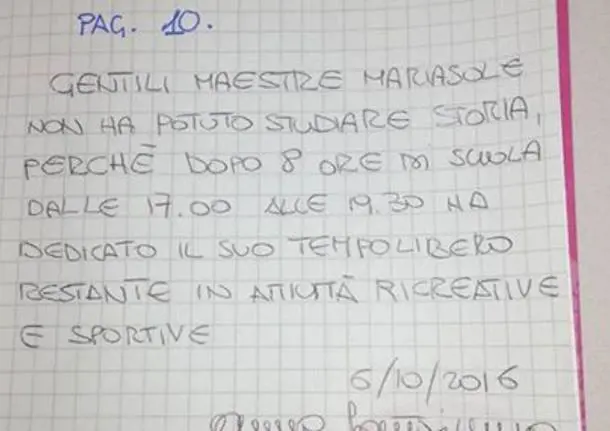 PAG. 10.
GENTILI MAESTRE MARIASOLE
NON HA POTUTO STUDIARE STORIA,
PERCHÈ DOPO 8 ORE DI SCUOLA
DALLE 17.00 ALLE 19.30 HA
DEDICATO IL SUO TEMPO LIBERO
RESTANTE IN ATTIVITÀ RICREATIVE
E SPORTIVE
6/10/2016